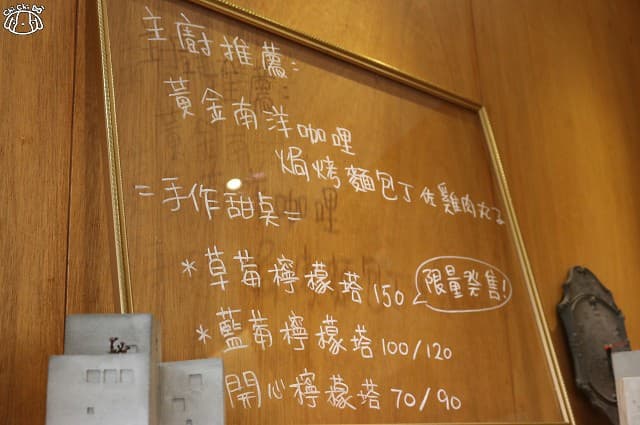 Chi Chi Bo
主廚推薦：
黃金南洋咖哩
焗烤麵包丁佐雞肉丸子
=手作甜点=
*草莓檸檬塔 150 限量発售!
*藍莓檸檬塔 100/120
開心檸檬塔 70/90